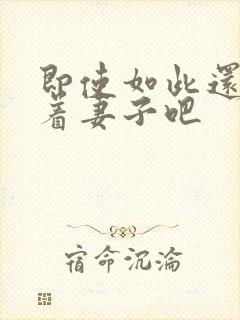 即使如此還
著妻子吧
宿命沉淪